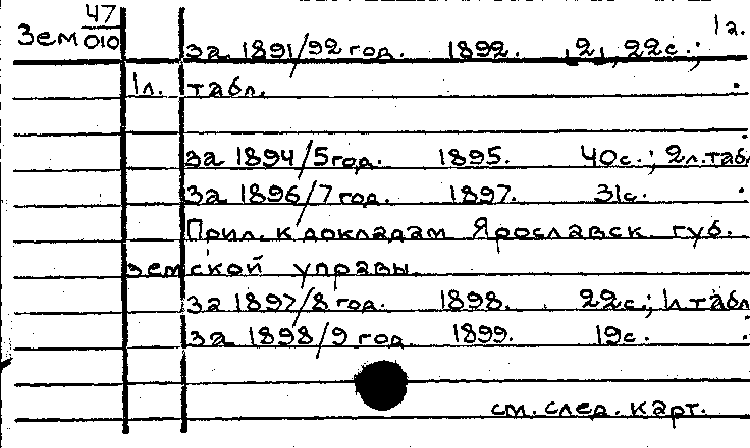 47
Зем 010
1 г.
за 1891/92 год. 1892. [2], 22с.;
1л. табл.
за 1894/5 год. 1895. 40с.; 2л. табл
за 1896/7 год. 1897. 31с.
Прил. к докладам Ярославск. губ.
земской управы.
за 1897/8 год. 1898. 22с.; 1л табл
за 1898/9 год 1899. 19с.
см. след. карт.